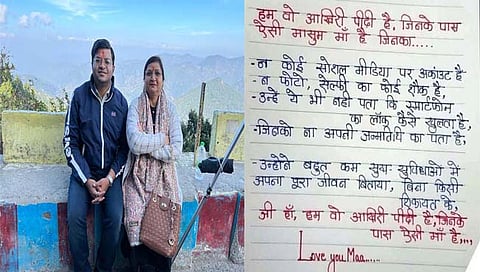 हम वो आखिरी पीढ़ी है, जिनके पास
ऐसी मासुम माँ है जिनका.....
- न कोई सोशल मीडिया पर अकाउंट है
- न फोटो, सेल्फी का कोई शौक है,
- उन्हें ये भी नही पता कि स्मार्टफोन
का लॉक कैसे खुलता है,
- जिनको ना अपनी जन्मतिथि का पता है,
- उन्होंने बहुत कम सुख-सुविधाओं में
अपना पूरा जीवन बिताया, बिना किसी
शिकायत के,
जी हाँ, हम वो आखिरी पीढ़ी है, जिनके
पास ऐसी माँ है....
Love you Maa.....